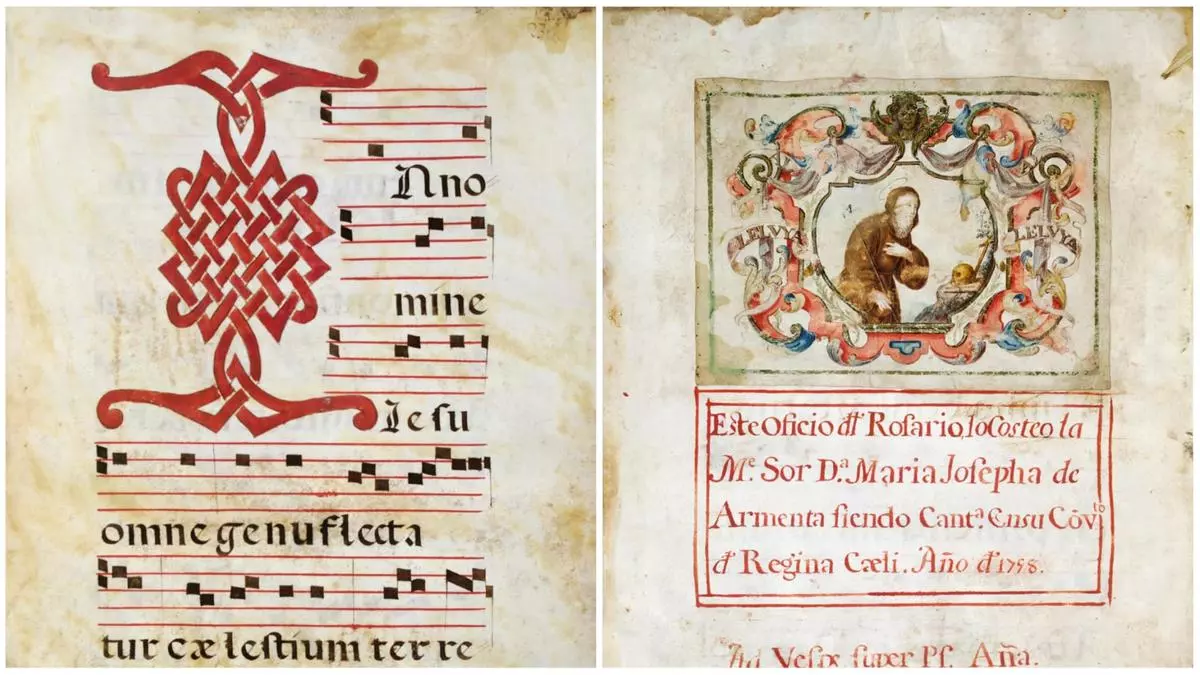 INno
mine
Iesu
omne genuflecta
tur cælestium ter re
LELVYA
LELVYA
Este Oficio đl Rosario, lo Costeo la
Mᵉ. Sor D.ª Maria Josepha de
Armenta siendo Cant.ª En su Cōv.ᵗᵒ
đ Regina Cæli. Año đ 1758.
Ad Vesp̄. super Ps. Aña.